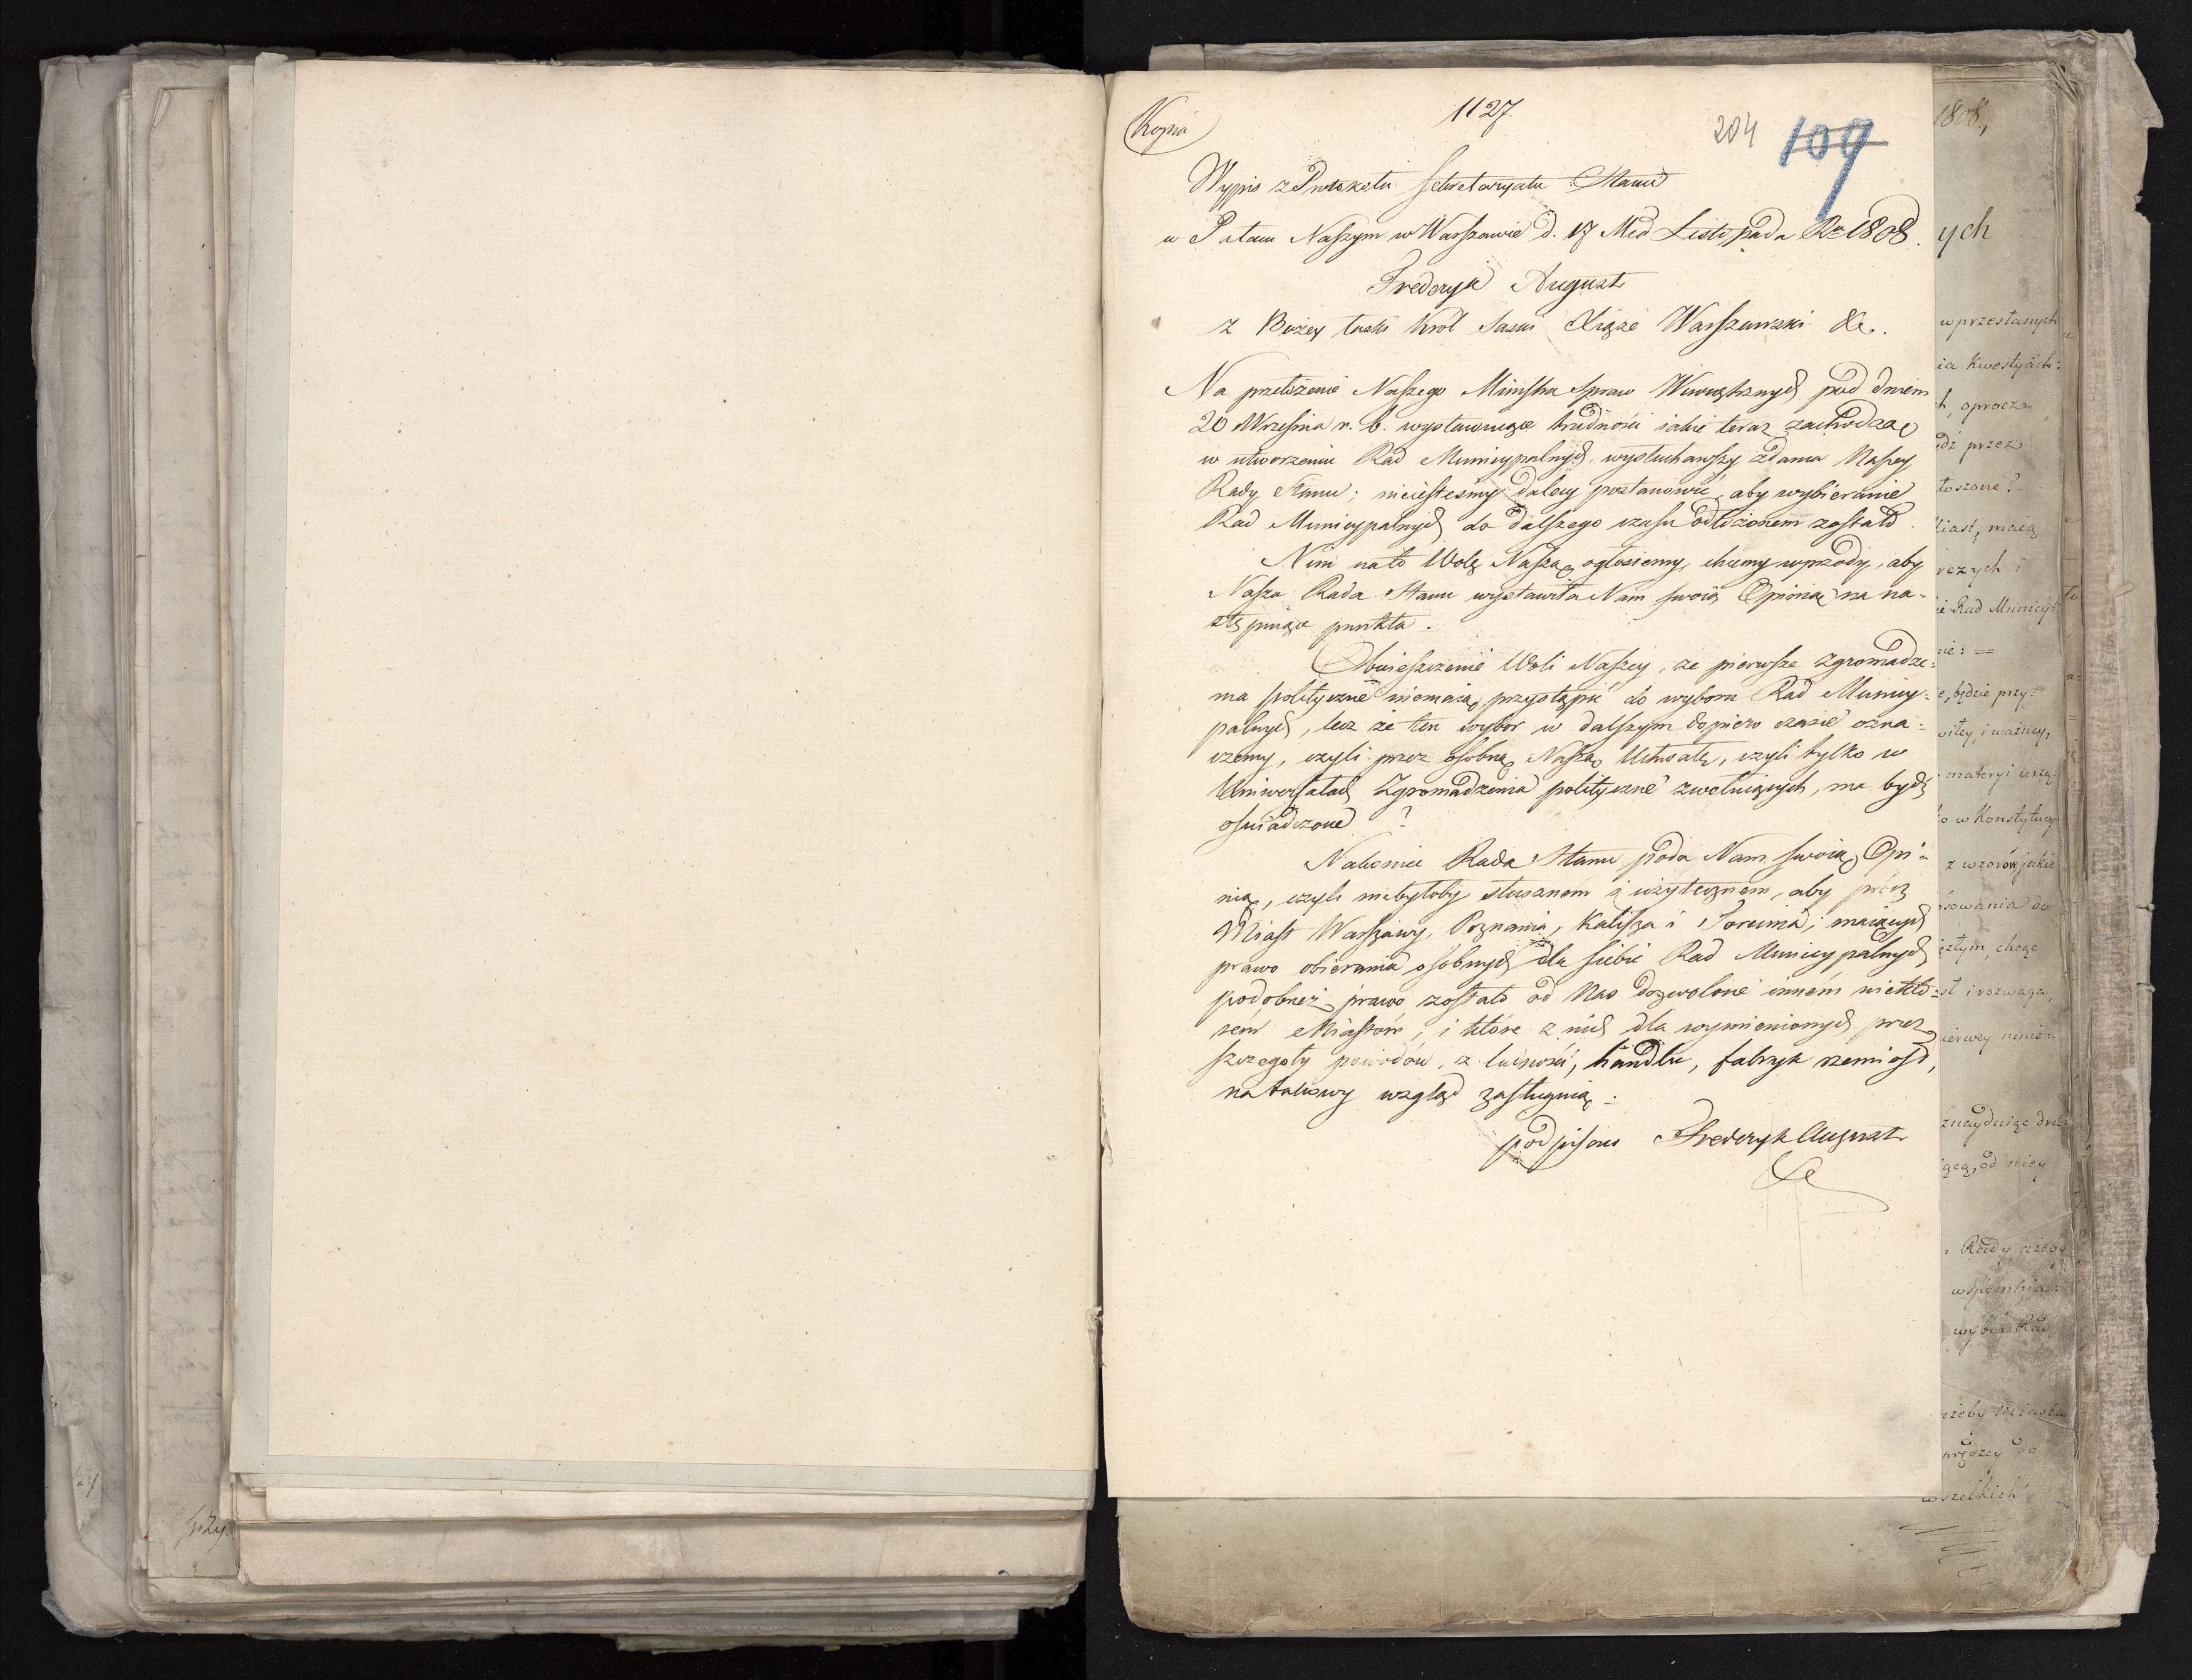 Kopia
1127.
204 109
Wypis z Protokołu Sekretaryatu Stanu
w Pałacu Naszym w Warszawie d. 17 Mca Listopada Ru 1808.
Fryderyk August
z Bożey łaski Król Saski Xiąże Warszawski &c.
Na przełożenie Naszego Ministra Spraw Wewnętrznych pod dniem
20 Września r. b. wystawuiące trudności iakie teraz zachodzą
w utworzeniu Rad Municypalnych, wysłuchawszy zdania Naszey
Rady Stanu; nieiesteśmy dalecy postanowić, aby wybieranie
Rad Municypalnych do dalszego czasu odłożonem zostało.
Nim na to Wolę Naszą ogłosiemy, chcemy wprzódy, aby
Nasza Rada Stanu wystawiła Nam swoią Opinią na na-
stępuiące punkta.
Obwieszczenie Woli Naszey, że pierwsze Zgromadze-
nia polityczne niemaią przystąpić do wyboru Rad Municy-
palnych, lecz że ten wybor w dalszym dopiero czasie ozna-
czemy, czyli przez osobną Naszą Uchwałę, czyli tylko w
Uniwersałach Zgromadzenia polityczne zwołuiących, ma bydź
oświadczone?
Nakoniec Rada Stanu poda Nam swoią Opi-
nią, czyli niebyłoby słusznem i użytecznem, aby prócz
Miast Warszawy, Poznania, Kalisza i Torunia, maiących
prawo obierania osobnych dla siebie Rad Municypalnych
podobneż prawo zostało od Nas dozwolone innem niektó-
rem Miastom, i które z nich dla wymienionych przez
szczegóły powodów, z ludności, handlu, fabryk rzemiosł,
na takowy wzgląd zasługuią.
podpisano Fryderyk August
1808,
ych
w przesłanych
ia Kwestyach:
h, oprocz
dź przez
łoszone?
iast, maią
rczych i
ie Rad Municy-
nie: =
e, będzie przy-
materyi
o w Konstytucyi
z wzorów jakie
sowania do
chcąc
st i rozwaga,
znayduiąc
, od niey
Rady, ażeby
wspomnia-
wybór Rad
eżeby Miasta
prędzey do
wszelkich